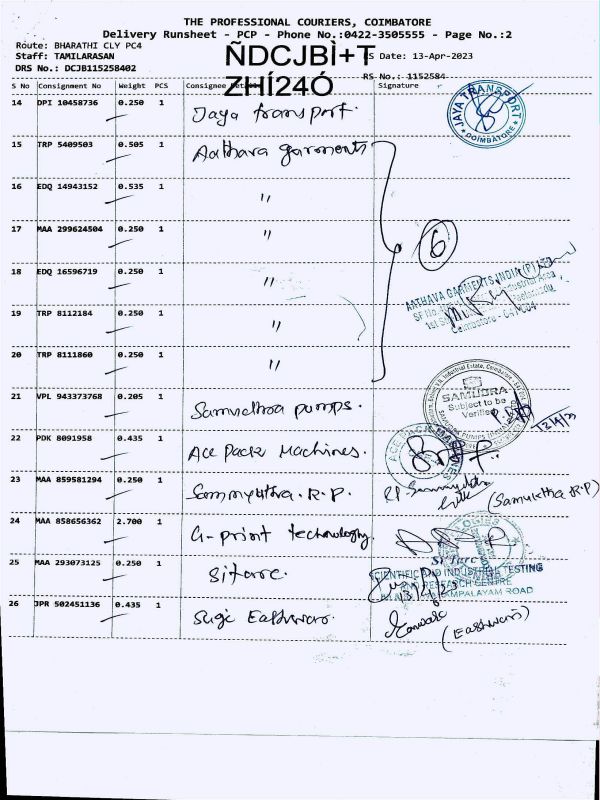 THE PROFESSIONAL COURIERS, COIMBATORE
Delivery Runsheet - PCP - Phone No.:0422-3505555 - Page No.:2
Route: BHARATHI CLY PC4
Staff: TAMILARASAN
DRS No.: DCJB115258402
ÑDCJBÌ+T
ZHÍ24Ó
Date: 13-Apr-2023
RS No.: 1152584
S No Consignment No Weight PCS Consignee Signature
14 DPI 10458736 0.250 1 Jaya transport.
JAYA TRANSPORT
COIMBATORE
15 TRP 5409503 0.505 1 Aathava garments
16 EDQ 14943152 0.535 1 "
17 MAA 299624504 0.250 1 "
6
18 EDQ 16596719 0.250 1 "
AATHAVA GARMENTS INDIA (P) LTD
Coimbatore - 641 004
19 TRP 8112184 0.250 1 "
20 TRP 8111860 0.250 1 "
21 VPL 943373768 0.205 1 Samudhra pumps.
SAMUDRA
Subject to be
Verified
22 PDK 8091958 0.435 1 Ace Pack Machines.
ACE PACK MACHINES
23 MAA 859581294 0.250 1 Sammyutha. R.P.
(Samuktha R.P)
24 MAA 858656362 2.700 1 G-print technology.
25 MAA 293073125 0.250 1 Sitarc.
Si'Tarc
SCIENTIFIC AND INDUSTRIAL TESTING
AND RESEARCH CENTRE
13/4/23
26 JPR 502451136 0.435 1 Suge Eashwari.
(Eashwari)